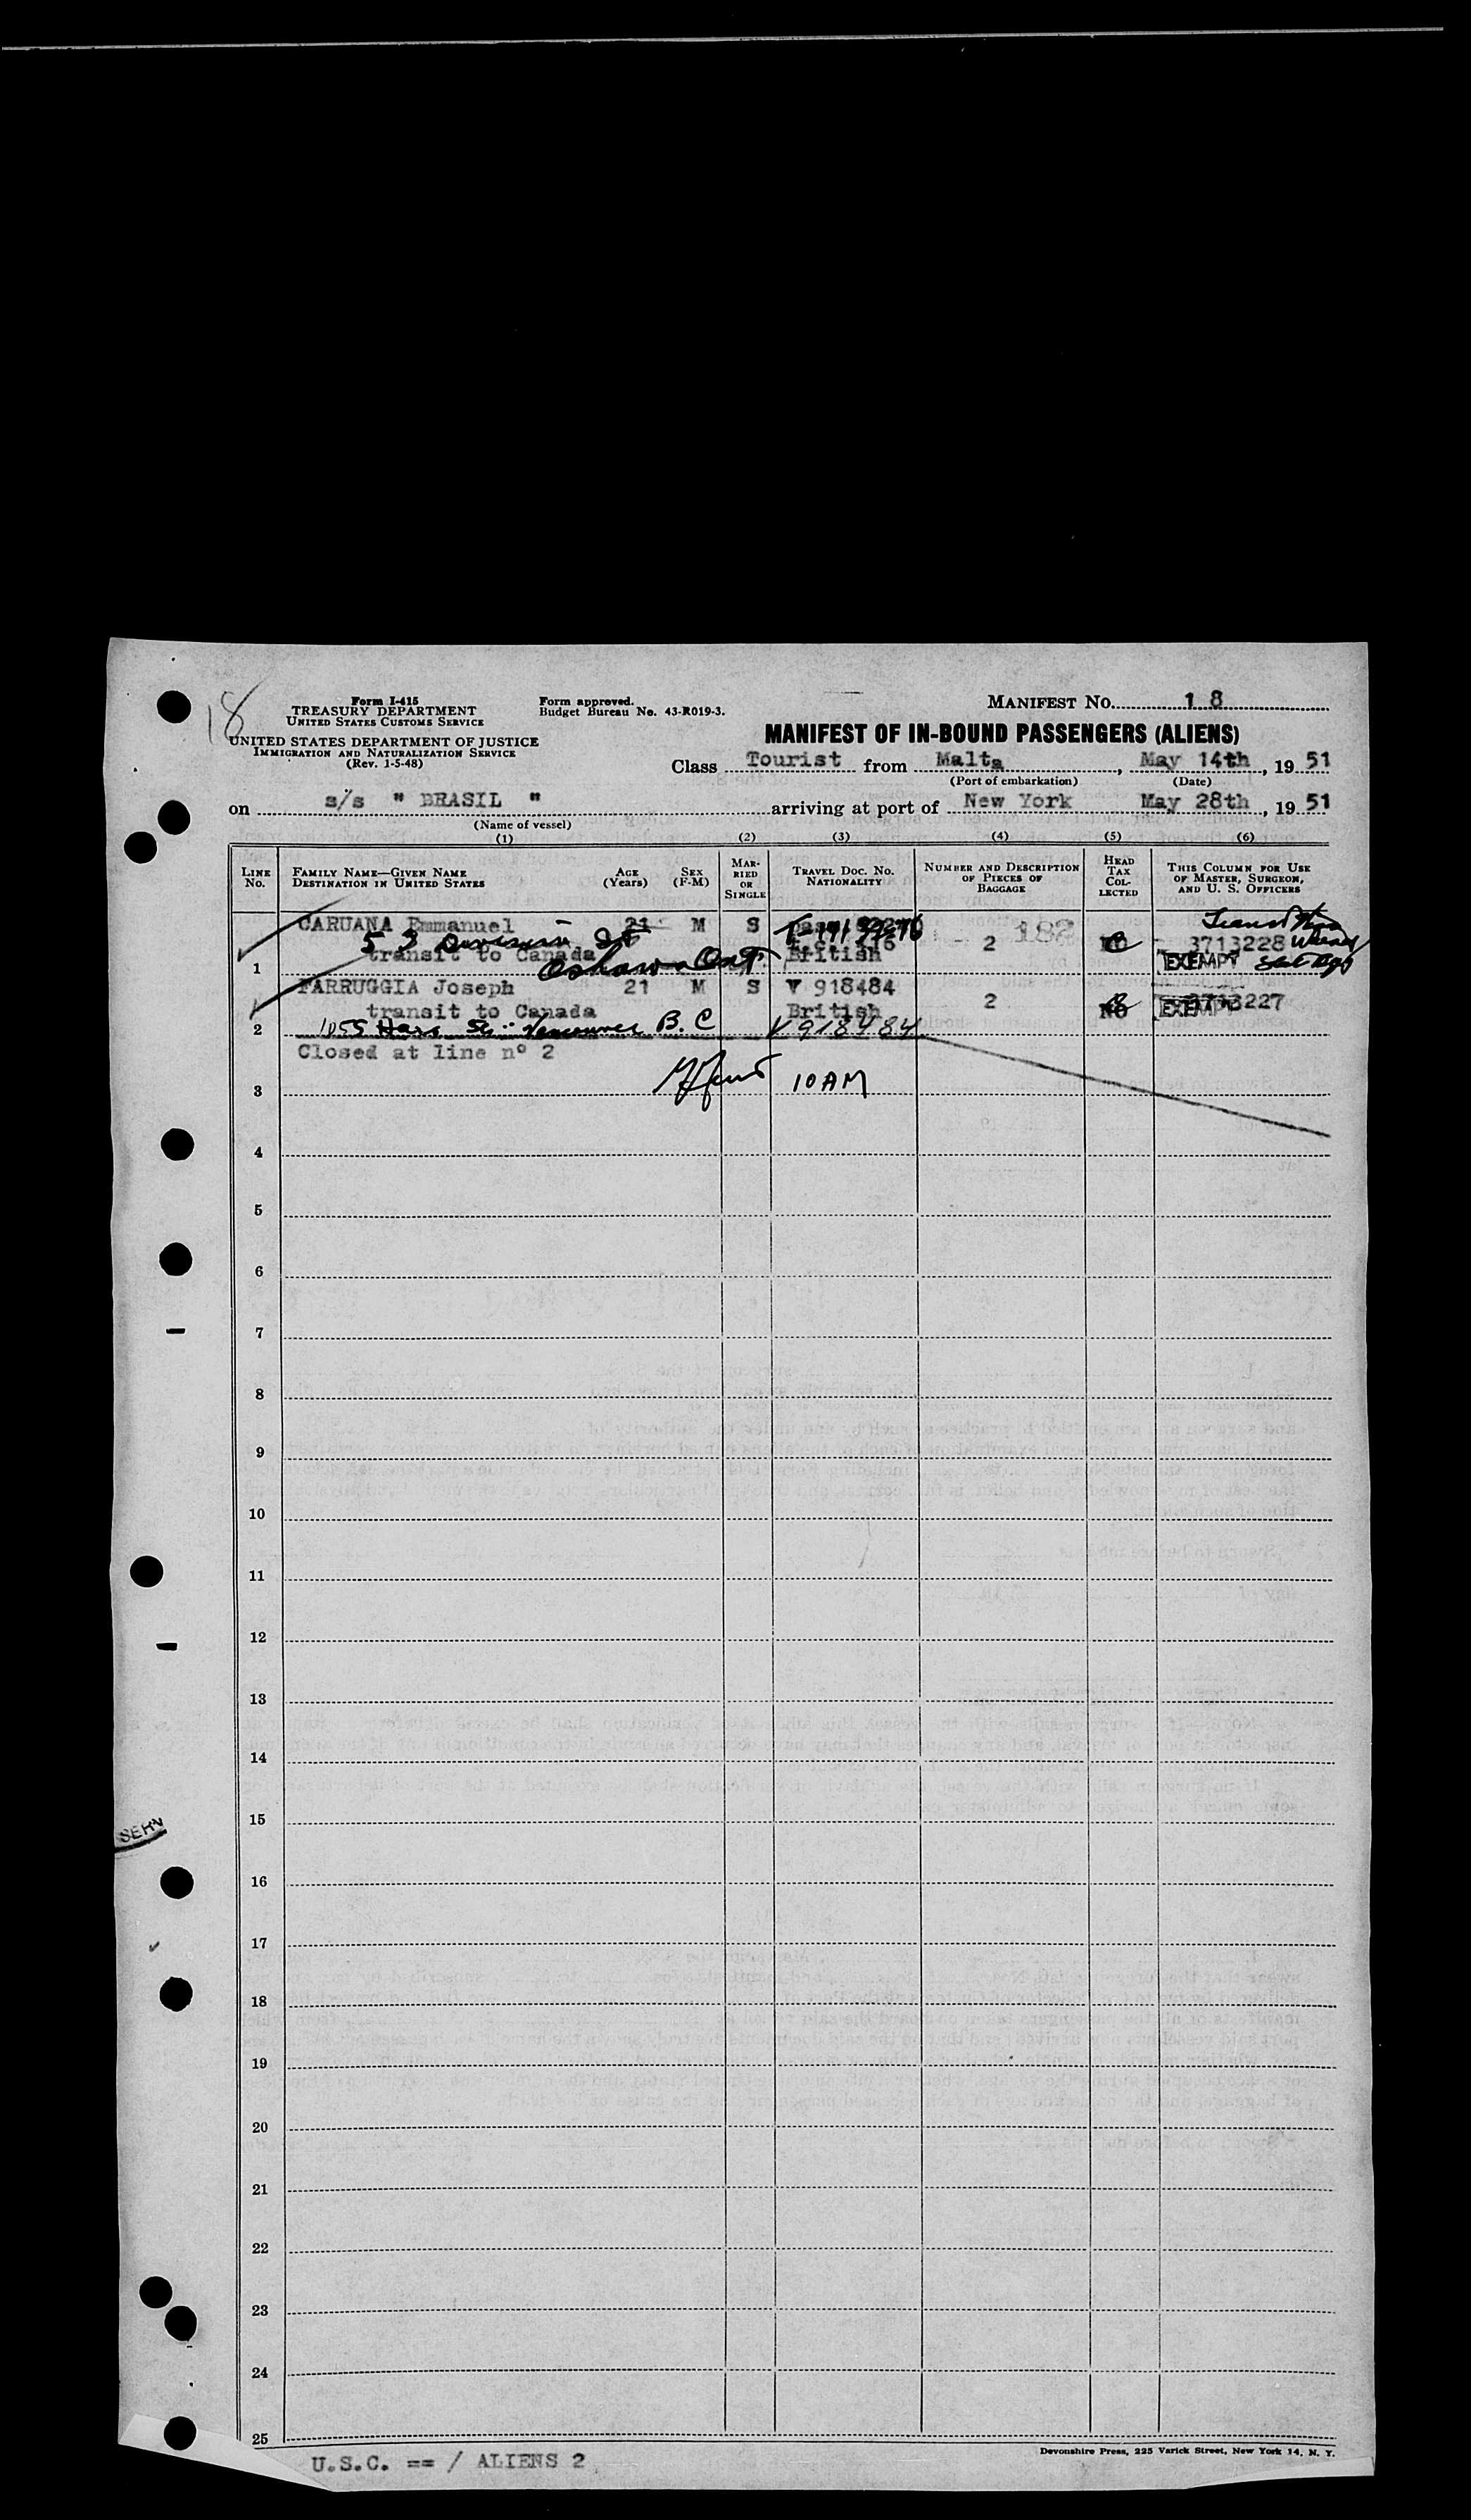 18
Form I-415
TREASURY DEPARTMENT
UNITED STATES CUSTOMS SERVICE
UNITED STATES DEPARTMENT OF JUSTICE
IMMIGRATION AND NATURALIZATION SERVICE
(Rev. 1-5-48)
Form approved.
Budget Bureau No. 43-R019-3.
MANIFEST No. 1 8
MANIFEST OF IN-BOUND PASSENGERS (ALIENS)
Class Tourist from Malta, May 14th, 19 51
(Port of embarkation) (Date)
on s/s " BRASIL " arriving at port of New York May 28th, 19 51
(Name of vessel)
(1) (2) (3) (4) (5) (6)
LINE No. FAMILY NAME—GIVEN NAME DESTINATION IN UNITED STATES AGE (Years) SEX (F-M) MARRIED OR SINGLE TRAVEL DOC. No. NATIONALITY NUMBER AND DESCRIPTION OF PIECES OF BAGGAGE HEAD TAX COLLECTED THIS COLUMN FOR USE OF MASTER, SURGEON, AND U. S. OFFICERS
CARUANA Emmanuel 21 M S
53 Division St 182
transit to Canada British 2 3713228
1 Oshawa Ont. EXEMPT
FARRUGGIA Joseph 21 M S V 918484
transit to Canada British 2 NO EXEMPT 3713227
2 1055 St. Vancouver B.C V918484
Closed at line nº 2
3 10 AM
4
5
6
7
8
9
10
11
12
13
14
15
SERV
16
17
18
19
20
21
22
23
24
25
Devonshire Press, 225 Varick Street, New York 14, N. Y.
U.S.C. == / ALIENS 2